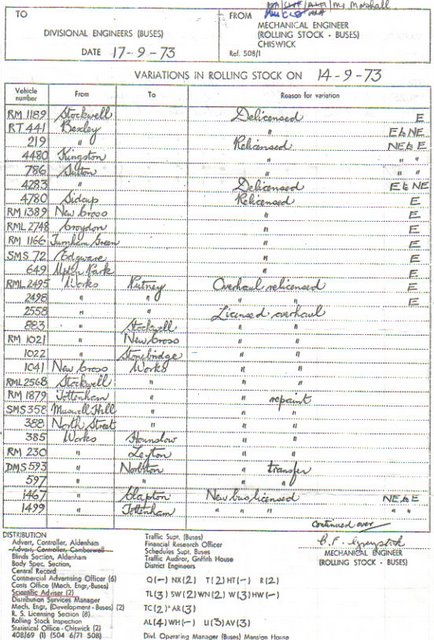 TO
DIVISIONAL ENGINEERS (BUSES)
DATE 17-9-73
FROM
Mr Marshall
MECHANICAL ENGINEER
(ROLLING STOCK - BUSES)
CHISWICK
Ref. 508/1
VARIATIONS IN ROLLING STOCK ON 14-9-73
Vehicle number From To Reason for variation
RM 1189 Stockwell Delicensed E
RT 441 Bexley " E & NE
219 " Relicensed NE & E
4480 Kingston " " "
786 Sutton " " "
4283 " Delicensed E & NE
4780 Sidcup Relicensed E
RM 1389 New Cross " E
RML 2748 Croydon " E
RM 1166 Turnham Green " E
SMS 72 Edgware " E
649 Upton Park " E
RML 2495 Works Putney Overhaul relicensed E
2498 " " " " E
2558 " " Licensed overhaul
883 " Stockwell " "
RM 1021 " New Cross " "
1022 " Stonebridge " "
1041 New Cross Works " "
RML 2568 Stockwell " " "
RM 1879 Tottenham " " repaint
SMS 358 Muswell Hill " " "
388 North Street " " "
385 Works Hounslow " "
RM 230 " Leyton " "
DMS 593 " Norbiton " transfer
597 " " " "
1467 " Clapton New bus licensed NE & E
1499 " Tottenham " " " "
Continued over
MECHANICAL ENGINEER
(ROLLING STOCK - BUSES)
DISTRIBUTION
Advert. Controller, Aldenham
Advert. Controller, Camberwell
Blinds Section, Aldenham
Body Spec. Section,
Central Record
Commercial Advertising Officer (6)
Costs Office (Mech. Engr. Buses)
Scientific Adviser (2)
Distribution Services Manager
Mech. Engr, (Development - Buses) (2)
R. S. Licensing Section (8)
Rolling Stock Inspection
Statistical Office - Chiswick (2)
408/69 (1) (504 6/71 508)
Traffic Supt. (Buses)
Financial Research Officer
Schedules Supt. Buses
Traffic Auditor, Griffith House
District Engineers
Q(-) NX(2) T(2) HT(-) R(2)
TL(3) SW(2) WN(2) W(3) HW(-)
TC(2) AR(3)
AL(4) WH(-) U(3) AV(3)
Divl. Operating Manager (Buses) Mansion House